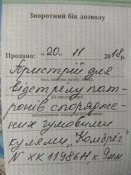 Зворотний бік дозволу
Продано: „20. 11 2018р.
Пристрій для
відстрілу пат-
ронів спорядже-
них гумовими
кулями, "Комбриг"
N ХК 11986Н к. 9мм